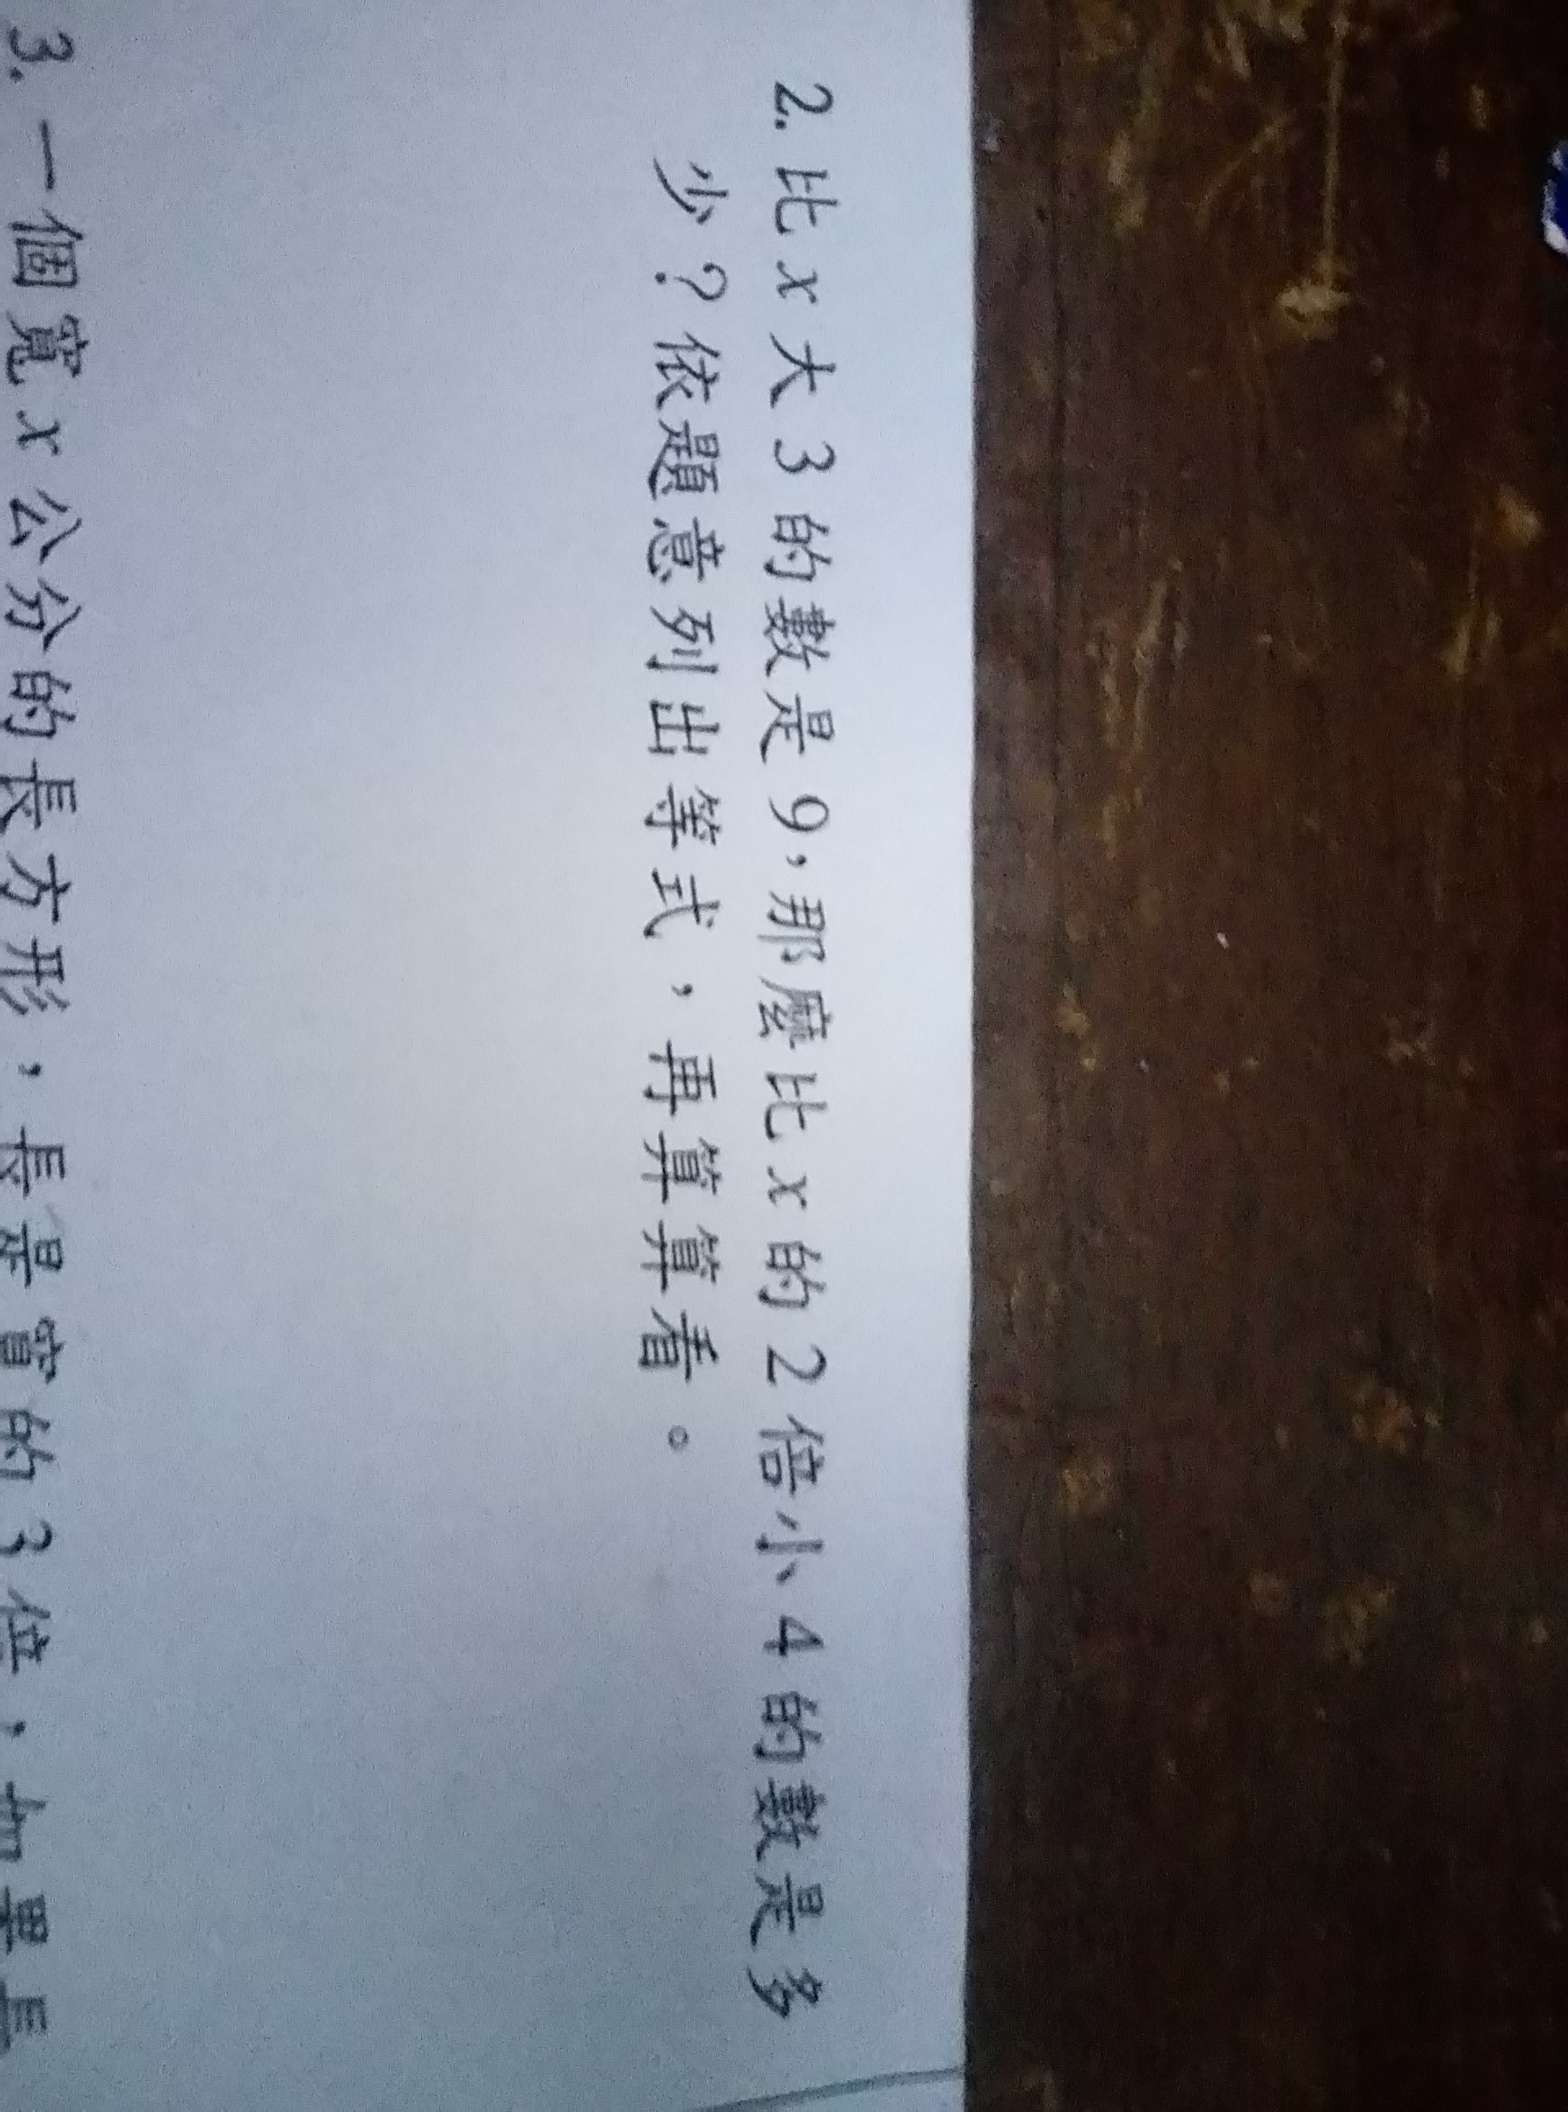 2. 比 x 大 3 的數是 9,那麼比 x 的 2 倍小 4 的數是多
少?依題意列出等式,再算算看。
3. 一個寬 x 公分的長方形,長是寬的 3 倍,如果長